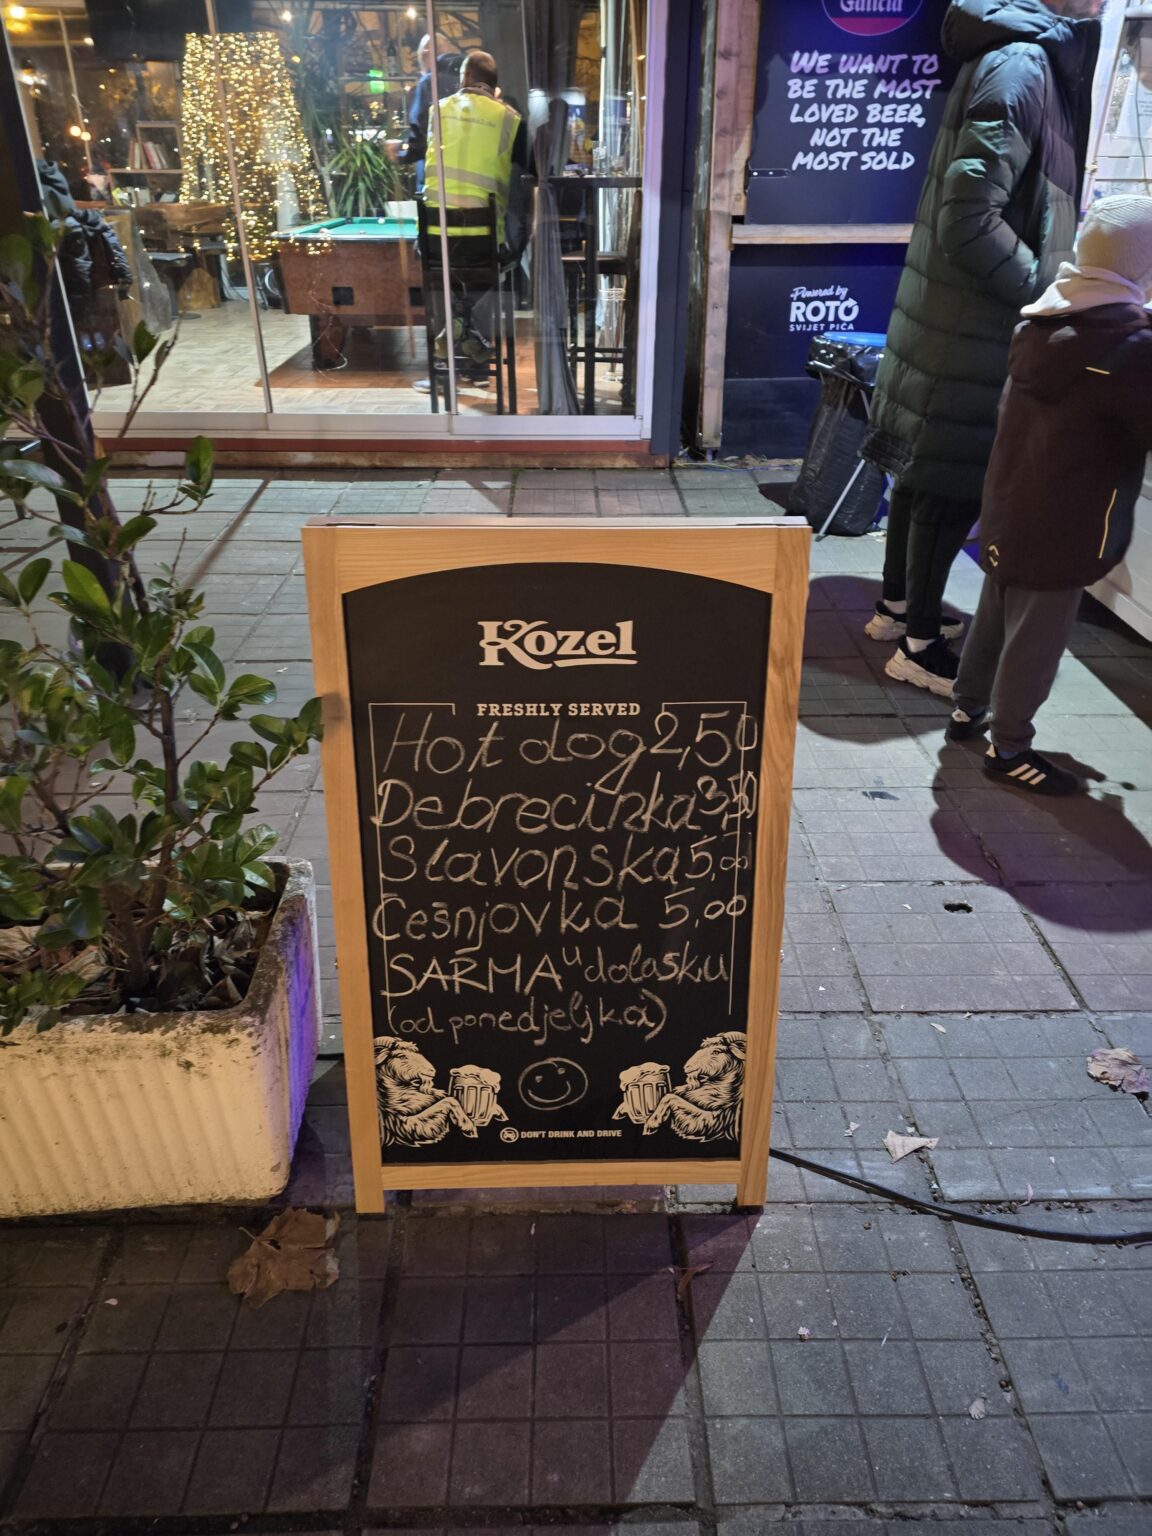 Galicia
WE WANT TO
BE THE MOST
LOVED BEER,
NOT THE
MOST SOLD
Powered by
ROTO
SVIJET PIĆA
Kozel
FRESHLY SERVED
Hot dog 2,50
Debrecinka 3,50
Slavonska 5,00
Češnjovka 5,00
SARMA u dolasku
(od ponedjeljka)
DON'T DRINK AND DRIVE